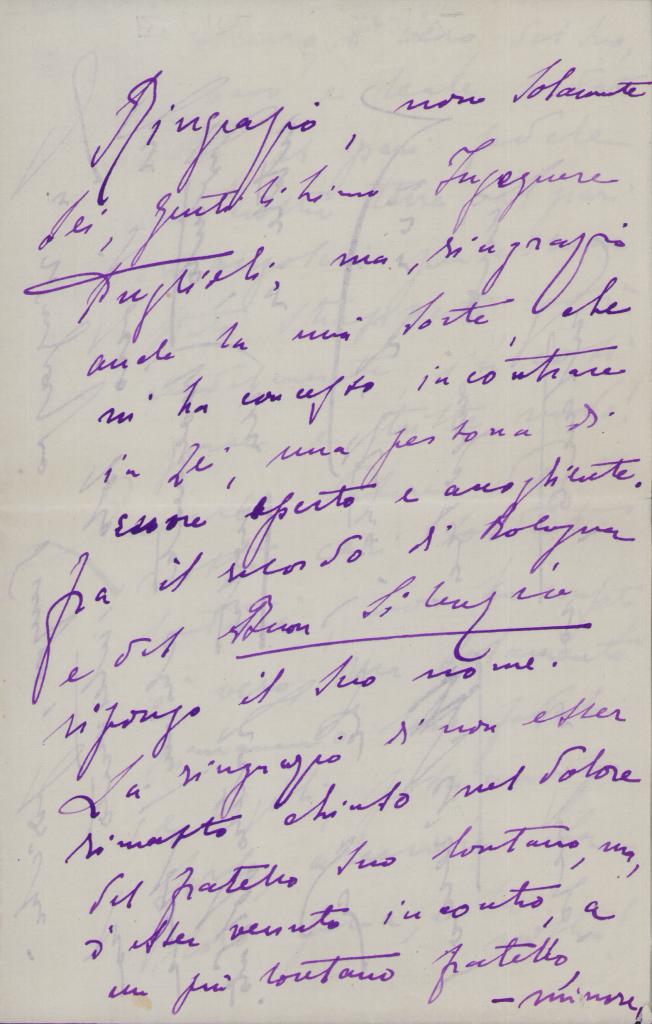 Ringrazio, non solamente
Lei, gentilissimo Ingegnere
Puglioli, ma, ringrazio
anche la mia sorte, che
mi ha concesso incontrare
in Lei, una persona di
cuore aperto e accogliente.
Fra il ricordo di Bologna
e del Buon Silenzio
ripongo il suo nome.
La ringrazio di non esser
rimasto chiuso nel dolore
del fratello suo lontano, ma,
d'esser venuto incontro, a
un più lontano fratello,
– minore,